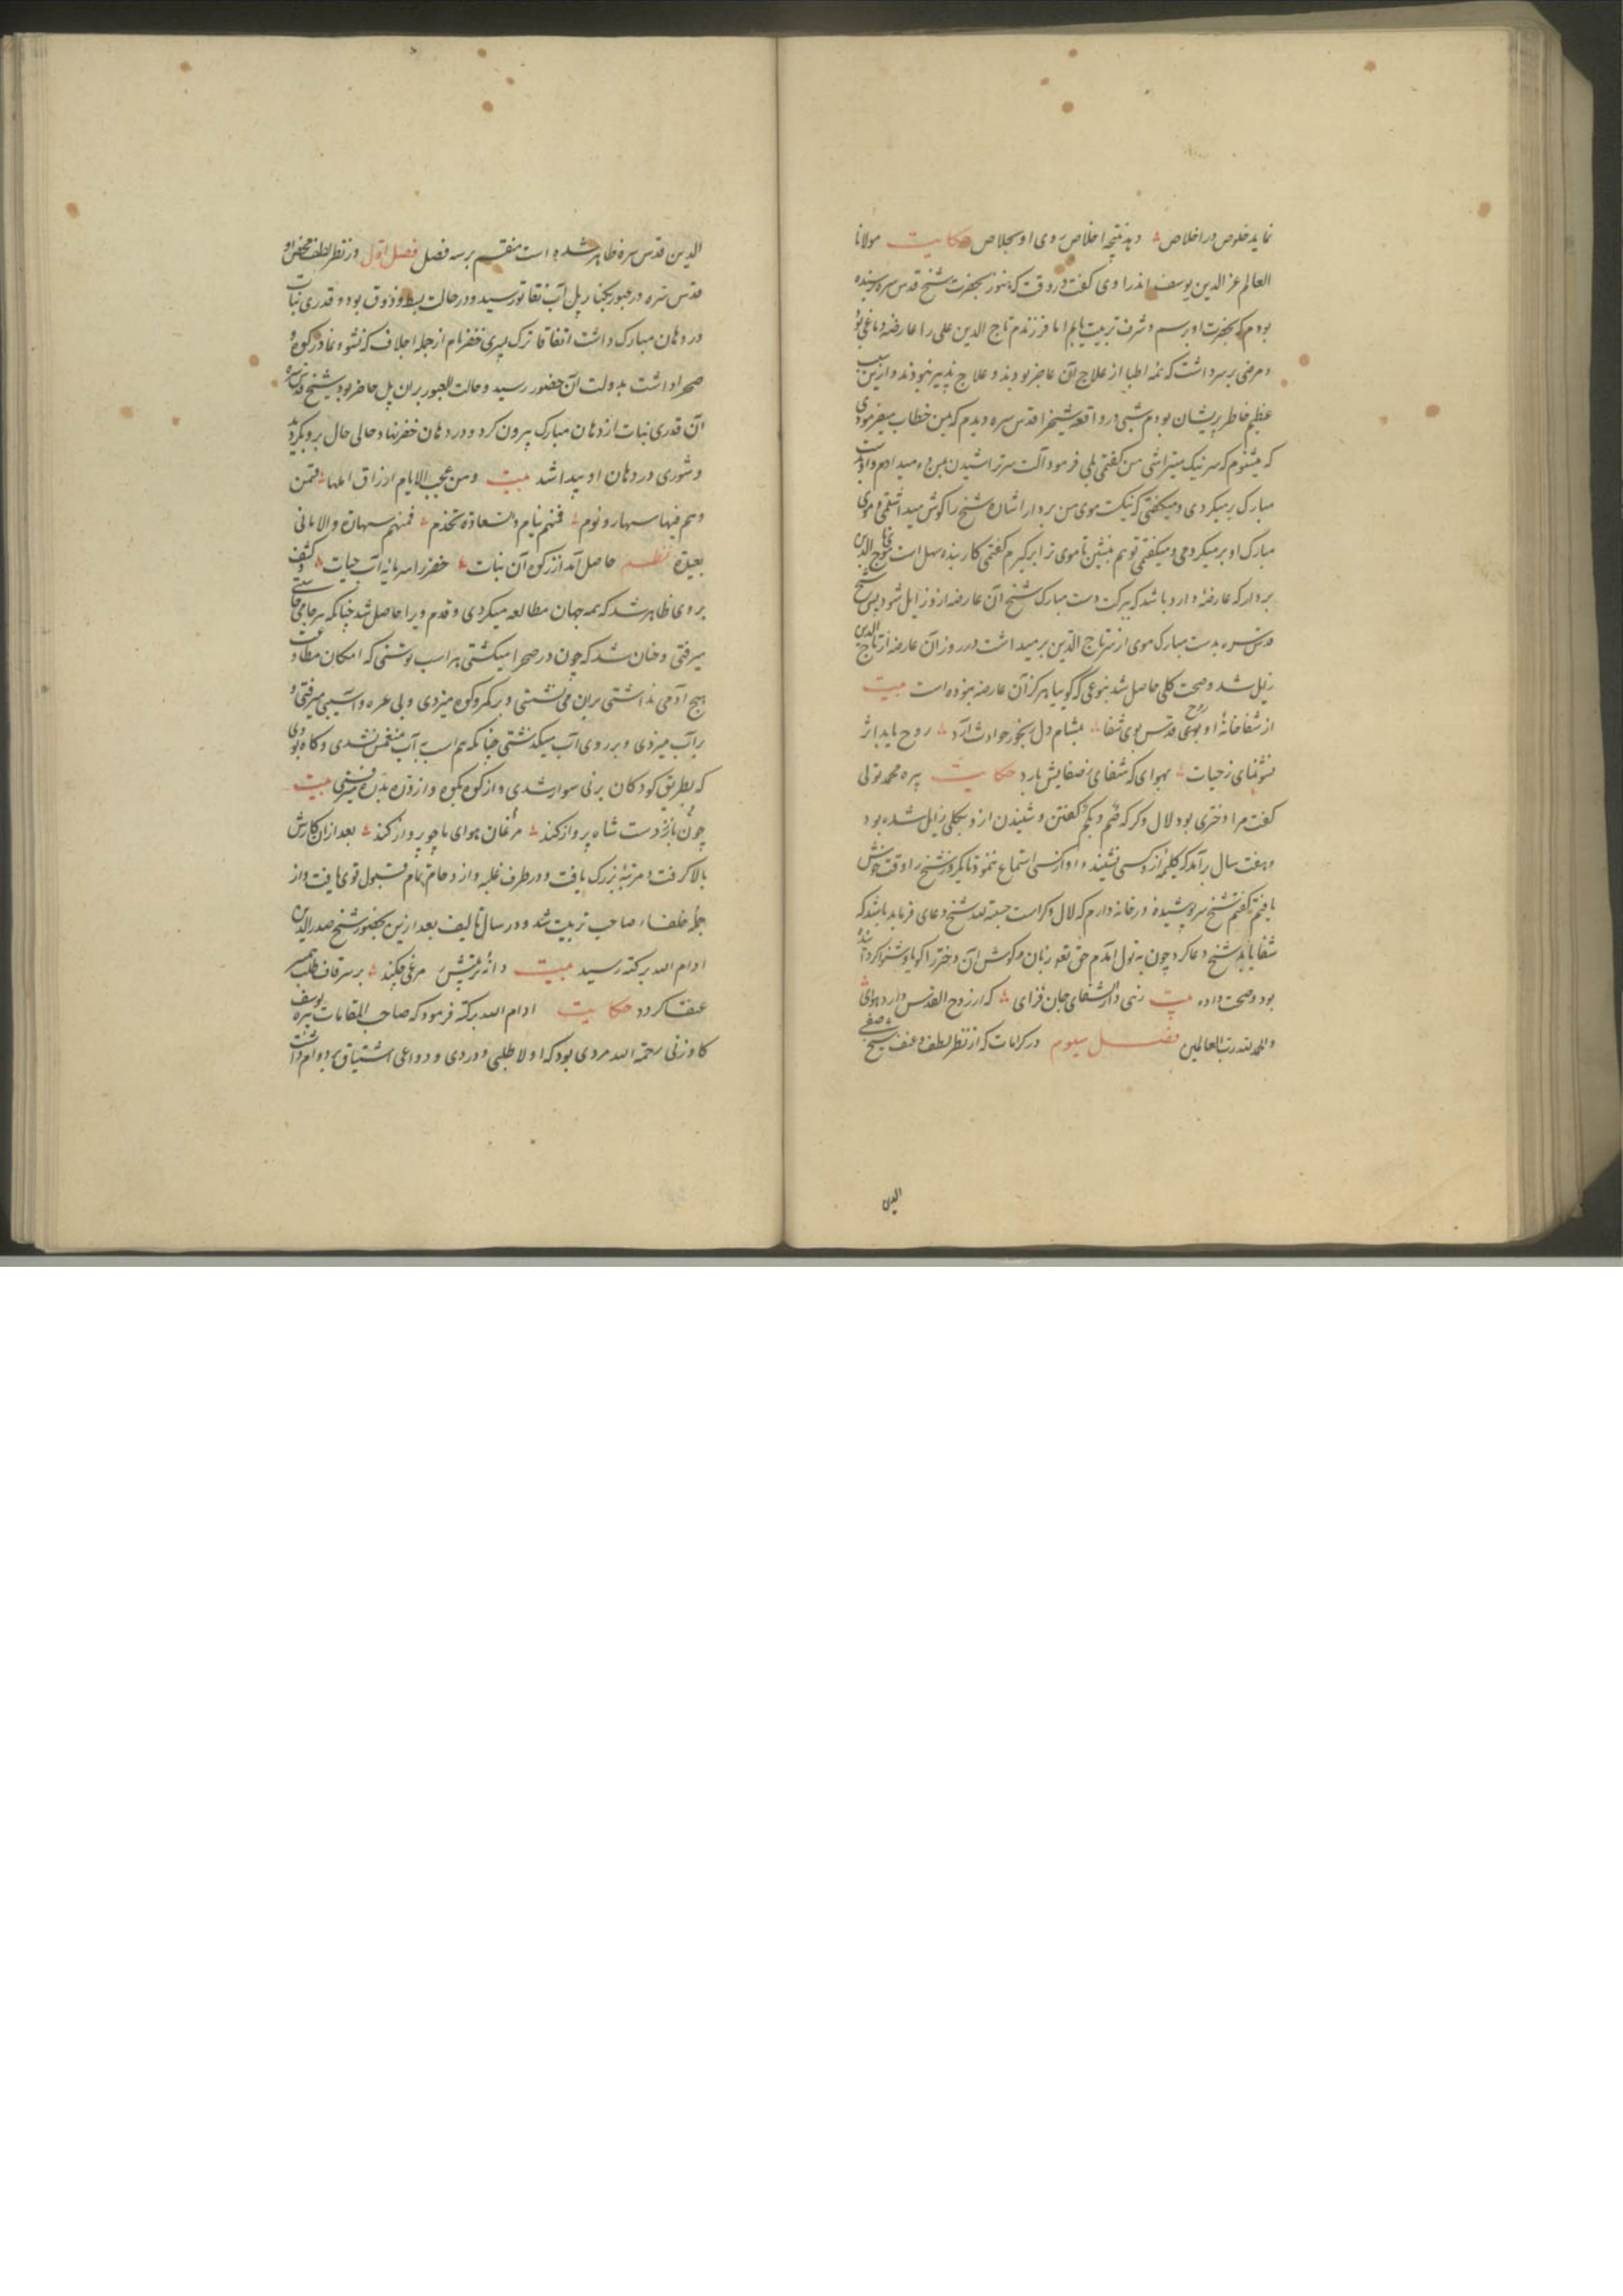 نماید خلوص در اخلاص دهد نتیجه اخلاص روی او بجلاص حکایت مولانا
العالم عز الدین یوسف اندراوی گفت در وقت که هنوز بحضرت شیخ قدس سره نرسیده
بودم که بحضرت او برسم و شرف تربیت یابم اما فرزندم تاج الدین علی را عارضه دماغی بود
و مرضی بر سر داشت که همه اطبا از علاج آن عاجز بودند و علاج پذیر نبودند و ازین سبب
عظیم خاطر پریشان بودم شبی در واقعه شیخ را قدس سره دیدم که بمن خطاب میفرمودی
که میشنوم که سر نیک میتراشی من گفتمی بلی فرمود آلت سر تراشیدن بمن ده میدادم و او بدست
مبارک بر میکردی و میگفتی که نیک موی من بردار اشارت شیخ را گوش میداشتمی و موی
مبارک او بر میکردمی و میگفتی تو هم بنشین تا موی ترا برگیرم گفتمی کار بنده سهل است موی تاج الدین
بردار که عارضه دارد باشد که ببرکت دست مبارک شیخ آن عارضه ازو زایل شود پس شیخ
قدس سره بدست مبارک موی از سر تاج الدین بر میداشت در روز آن عارضه از تاج الدین
زایل شد و صحت کلی حاصل شد بنوعی که گوییا هرگز آن عارضه نبوده است بیت
از شفاخانهٔ او بوی روح قدس بوی شفا بمشام دل رنجور حوادث آرد روح یابد اثر
نشو نمای ز حیات بهوای که شفای ز صفایش بارد حکایت پیره محمد تولی
گفت مرا دختری بود لال و کر که صم و بکم گفتن و شنیدن ازو بکلی زایل شده بود
و هفت سال برآمد که کلمه از و کسی نشنید و او از کسی استماع ننمود تا یکروز شیخ را وقت خوش
یافتم گفتم شیخ سر پوشیده در خانه دارم که لال و کر است حسبة لله شیخ دعای فرماید باشد که
شفا یابد شیخ دعا کرد چون به تول آمدم حق تعالی زبان و گوش آن دختر را گویا و شنوا کرده
بود و صحت داده بیت زهی دار الشفای جان فزای که از روح القدس دارد هوای
والحمد لله رب العالمین فصل سیوم در کرامات که از نظر لطف و عنف شیخ صفی
الدین
الدین قدس سره ظاهر شده است منقسم بر سه فصل فصل اول در نظر لطف شیخ
قدس سره در عبور بکنار پل آب نقاتو رسید و در حالت بسط و ذوق بود و قدری نبات
در دهان مبارک داشت اتفاقا ترک پسری خضر نام از جمله اجلاف که نشو و نما در کوه و
صحرا داشت بدولت آن حضور رسید و حالت العبور بران پل حاضر بود شیخ قدس سره
آن قدری نبات از دهان مبارک بیرون کرد و در دهان خضر نهاد حالی حال برو بگردید
و شوری در دهان او پیدا شد بیت و من عجب الایام ارزاق اهلها فمن
وهم فیها سهار و نوم فمنهم نیام والسعادة تخدم فمنهم سهاد والامانی
بعیدة نظم حاصل آمد از زکوة آن نبات خضر را سرمایه آب حیات و کشف
بر وی ظاهر شد که همه جهان مطالعه میکردی و قدم ویرا حاصل شد چنانکه هر جا می خواستی
میرفتی و چنان شد که چون در صحرا میگشتی بر اسب توسنی که امکان مطاوعت
هیچ آدمی نداشتی بران می نشستی و بر کمر کوه میزدی و بی عره و آسیبی میرفتی و
بر آب میزدی و بر روی آب میگذشتی چنانکه سم اسب به آب منغمس نشدی و گاه بودی
که بطریق کودکان بر نی سوار شدی و از کوه بکوه و از ذره بذره میرفتی بیت
چون باز ز دست شاه پرواز کند مرغان هوای با چو پرواز کند بعد ازان کارش
بالا گرفت و مرتبهٔ بزرگ یافت و در طرف غلبه و ازدحام تمام و قبول قوی یافت و از
جملهٔ خلفاء صاحب تربیت شد و در سال تالیف بعد ازین بحضور شیخ صدر الدین
ادام الله برکته رسید بیت دانهٔ عزتش مرغی چند بر سر قاف طلب همسر
عنقا گردد حکایت ادام الله برکته فرمود که صاحب المقامات پیره یوسف
کاوزنی رحمة الله مردی بود که اولا طلبی و دردی و دواعی اشتیاق بر دوام داشت